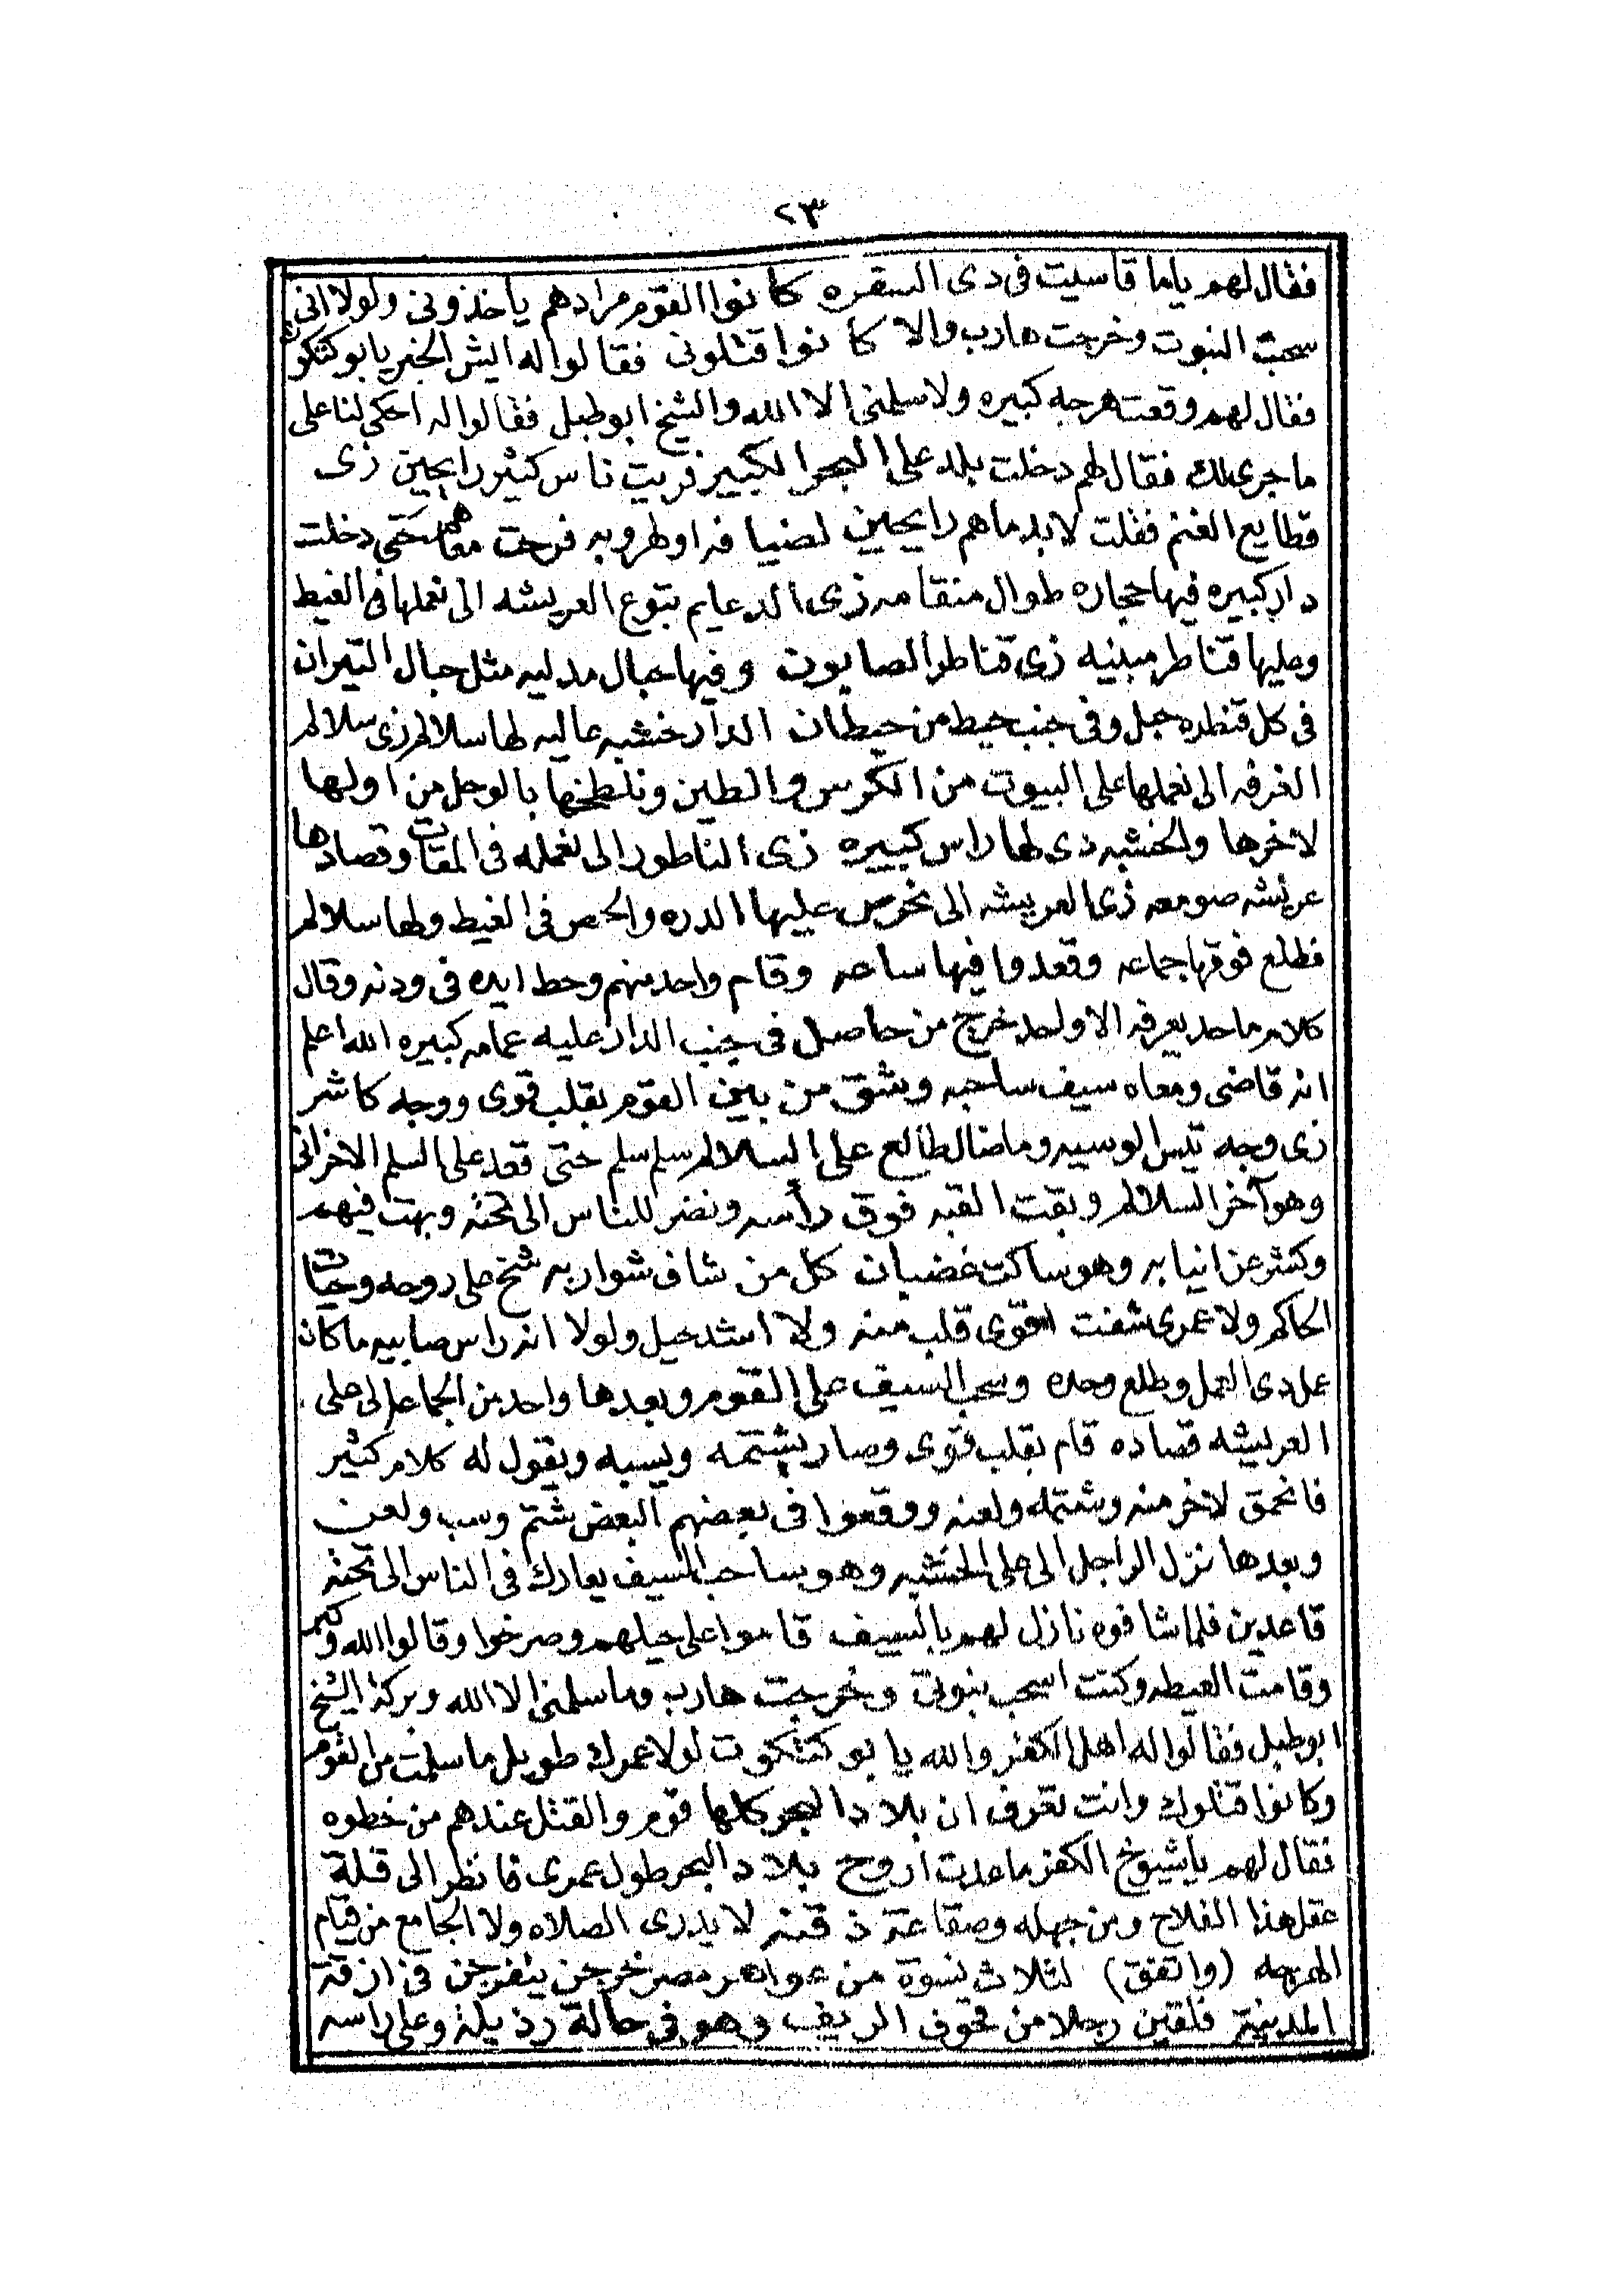 ٢٣
فقال لهم ياما قاسيت فى دى السقره كانوا القوم مرادهم ياخذونى ولولا انى
سحبت النبوت وخرجت هارب والا كانوا قتلونى فقالوا له ايش الخبر يا بو كتكوت
فقال لهم وقعت هرجه كبيره ولا سلمنى الا الله والشيخ ابو طبل فقالوا له احكى لنا على
ما جرى لك فقال لهم دخلت بلد على البحر الكبير فريت ناس كثير رايحين زى
قطايع الغنم فقلت لابد ما هم رايحين لضيافه او لطروبه فرحت معاهم حتى دخلت
دار كبيره فيها حجاره طوال منقامه زى الدعايم بتوع العريشه الى نعملها فى الغيط
وعليها قناطر مبنيه زى قناطر الصابوت وفيها حبال مدليه مثل حبال التيران
فى كل قنطره حبل وفى جنب حيط من حيطان الدار خشبه عاليه لها سلالم زى سلالم
الغرفه الى نعملها على البيوت من الكرس والطين ونلطخها بالوحل من اولها
لاخرها والخشبه دى لها راس كبيره زى الناطور الى نعمله فى المقات وقصادها
عريشه صومعه زى العريشه الى نحرس عليها الدره والحمص فى الغيط ولها سلالم
فطلع فوقها جماعه وقعدوا فيها ساعه وقام واحد منهم وحط ايده فى ودنه وقال
كلام ما حد يعرفه الا ولحد خرج من حاصل فى جنب الدار عليه عمامه كبيره الله اعلم
انه قاضى ومعاه سيف ساحبه وشق من بين القوم بقلب قوى ووجه كاشر
زى وجه تيس الوسيه وما ضال طالع على السلالم سلم سلم حتى قعد على السلم الاخرانى
وهو آخر السلالم وبقت القبه فوق رأسه ونضر للناس الى تحته وبهت فيهم
وكشر عن انيابه وهو ساكت غضبان كل من شاف شواربه شخ على روحه وحيات
الحاكم ولا عمرى شفت اقوى قلب منه ولا اشد حيل ولولا انه راس صابيه ما كان
عمل دى العمل وطلع وحده وسحب السيف على القوم وبعدها واحد من الجماعه الى على
العريشه قصاده قام بقلب قوى وصار يشتمه ويسبه ويقول له كلام كثير
فانحمق لاخر منه وشتمه ولعنه ووقعوا فى بعضهم البعض شتم وسب ولعن
وبعدها نزل الراجل الى على الخشبه وهو ساحب السيف يعارك فى الناس الى تحته
قاعدين فلما شافوه نازل لهم بالسيف قاموا على حيلهم وصرخوا وقالوا الله وكبر
وقامت العيطه وكنت اسحب نبوتى وخرجت هارب وما سلمنى الا الله وبركة الشيخ
ابو طبل فقالوا له اهل الكفر والله يا بو كتكوت لولا عمرك طويل ما سلمت من القوم
وكانوا قتلوك وانت تعرف ان بلاد البحر كلها قوم والقتل عندهم من خطوه
فقال لهم يا شيوخ الكفر ما عدت اروح بلاد البحر طول عمرى فانظر الى قلة
عقل هذا الفلاح ومن جهله وصقاعة ذقنه لا يدرى الصلاه ولا الجامع من قيام
الهرجه (واتفق) لثلاث نسوة من عواهر مصر خرجن يتفرجن فى ازقة
المدينة فلقين رجلا من قحوف الريف وهو فى حالة رذيلة وعلى راسه